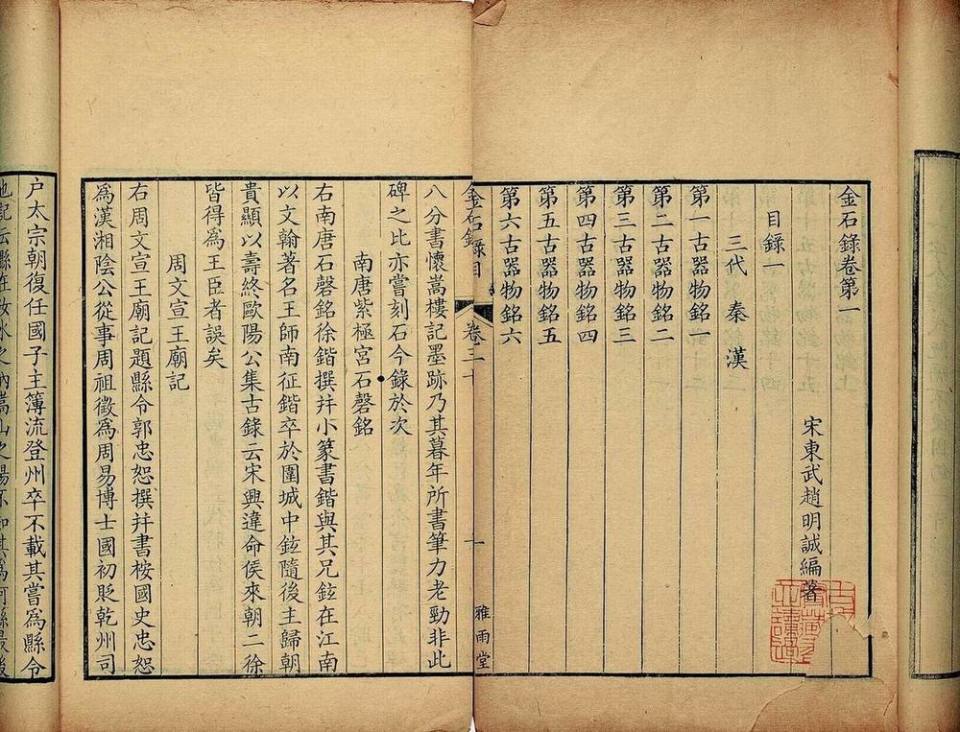 金石錄卷第一
宋東武趙明誠編著
目錄一
三代 秦 漢
第一古器物銘一
第二古器物銘二
第三古器物銘三
第四古器物銘四
第五古器物銘五
第六古器物銘六
金石錄目 卷三十 一 雅雨堂
八分書懷嵩樓記墨跡乃其暮年所書筆力老勁非此
碑之比亦嘗刻石今錄於次
南唐紫極宮石磬銘
右南唐石磬銘徐鍇撰并小篆書鍇與其兄鉉在江南
以文翰著名王師南征鍇卒於圍城中鉉隨後主歸朝
貴顯以壽終歐陽公集古錄云宋興違命侯來朝二徐
皆得爲王臣者誤矣
周文宣王廟記
右周文宣王廟記題縣令郭忠恕撰并書桉國史忠恕
爲漢湘陰公從事周祖徵爲周易博士國初貶乾州司
户太宗朝復任國子主簿流登州卒不載其嘗爲縣令